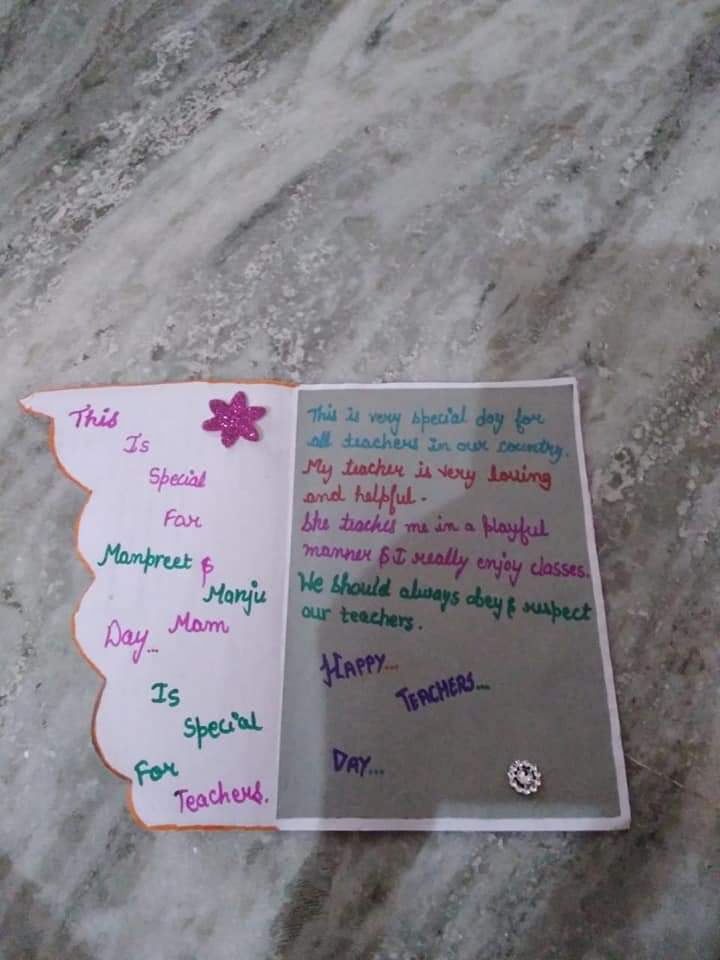 This
Is
Special
For
Manpreet &
Manju
Day... Mam
Is
Special
For
Teachers.
This is very special day for
all teachers in our country.
My teacher is very loving
and helpful.
She teaches me in a playful
manner & I really enjoy classes.
We should always obey & respect
our teachers.
HAPPY...
TEACHERS...
DAY...